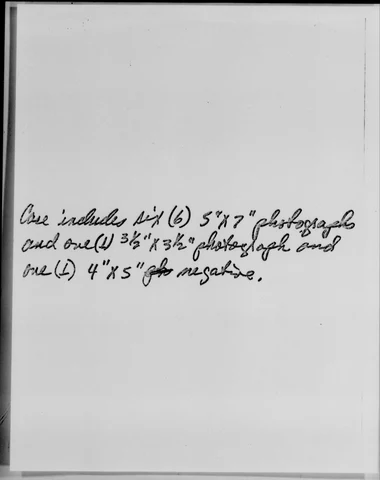 Case includes six (6) 5"X7" photographs
and one (1) 3½"X3½" photograph and
one (1) 4"X5" negative.